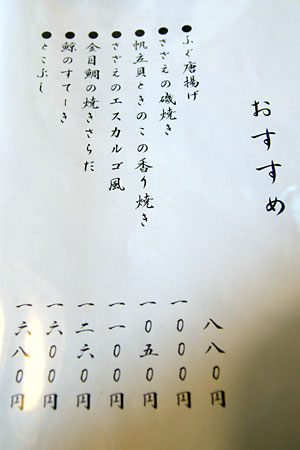 おすすめ
●ふぐ唐揚げ 八八0円
●さざえの磯焼き 一000円
●帆立貝ときのこの香り焼き 一0五0円
●さざえのエスカルゴ風 一一00円
●金目鯛の焼きさらだ 一二六0円
●鯨のすてーき 一六00円
●とこぶし 一六八0円